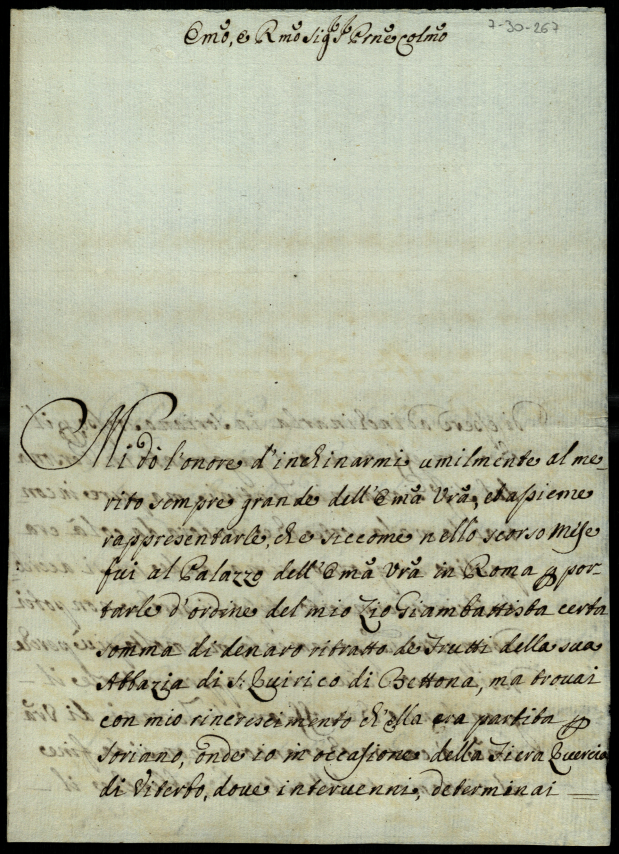 7-30-267
Emo, e Rmo Sig. Prne Colmo
Mi dò l'onore d'inchinarmi umilmente al me-
rito sempre grande dell'Emā Vrā, et assieme
rappresentarle, che siccome nello scorso Mese
fui al Palazzo dell'Emā Vrā in Roma p por-
tarle d'ordine del mio Zio Giambattista certa
somma di denaro ritratto de Frutti della sua
Abbazia di S. Quirico di Bettona, ma trovai
con mio rincrescimento ch'ella era partita p
Soriano, onde io in occasione della Fiera Quercia
di Viterbo, dove intervenni, determinai